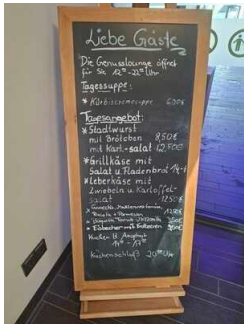 Liebe Gäste
Die Genusslounge öffnet
für Sie 12⁰⁰-22⁰⁰ Uhr
Tagessuppe:
* Kürbiscremesuppe 6,00€
Tagesangebot:
* Stadtwurst
mit Brötchen 8,50€
mit Kart.-salat 12,50€
* Grillkäse mit
Salat u. Fladenbrot 14,-€
* Leberkäse mit
Zwiebeln u. Kartoffel-
salat 12,50€
Rucola + Parmesan
* Eisbecher mit
Kuchen
14⁰⁰ - 17⁰⁰
Küchenschluß 20⁰⁰ Uhr